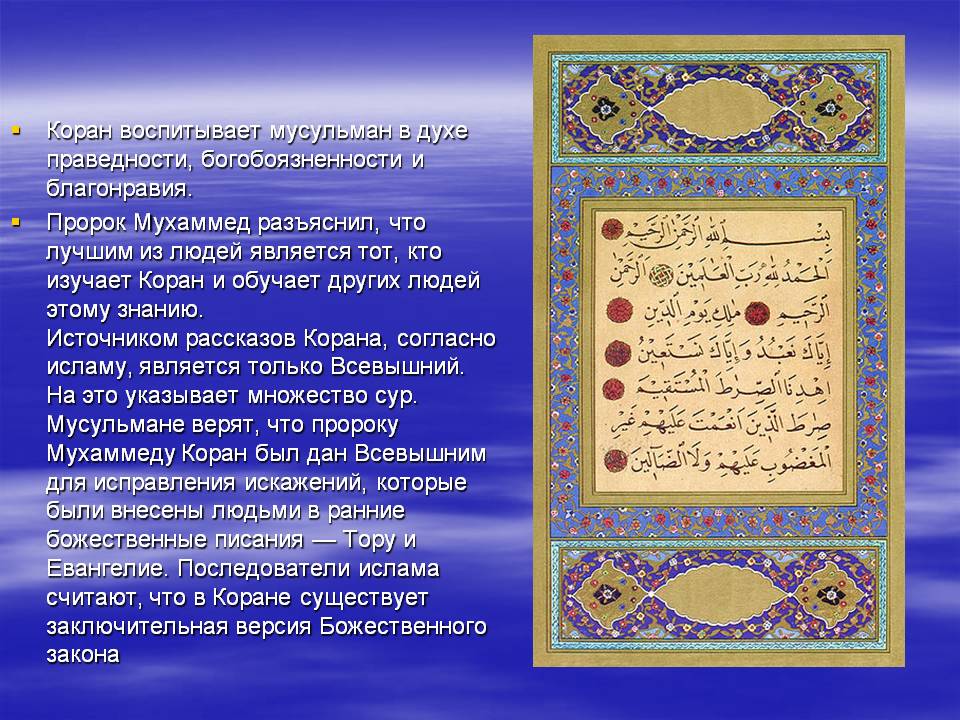 Коран воспитывает мусульман в духе
праведности, богобоязненности и
благонравия.
Пророк Мухаммед разъяснил, что
лучшим из людей является тот, кто
изучает Коран и обучает других людей
этому знанию.
Источником рассказов Корана, согласно
исламу, является только Всевышний.
На это указывает множество сур.
Мусульмане верят, что пророку
Мухаммеду Коран был дан Всевышним
для исправления искажений, которые
были внесены людьми в ранние
божественные писания — Тору и
Евангелие. Последователи ислама
считают, что в Коране существует
заключительная версия Божественного
закона
بِسْمِ اللهِ الرَّحْمٰنِ الرَّحِيمِ
اَلْحَمْدُ لِلّٰهِ رَبِّ الْعَالَمِينَ الرَّحْمٰنِ
الرَّحِيمِ مٰلِكِ يَوْمِ الدِّينِ
اِيَّاكَ نَعْبُدُ وَاِيَّاكَ نَسْتَعِينُ
اِهْدِنَا الصِّرَاطَ الْمُسْتَقِيمَ
صِرَاطَ الَّذِينَ اَنْعَمْتَ عَلَيْهِمْ غَيْرِ
الْمَغْضُوبِ عَلَيْهِمْ وَلَا الضَّالِّينَ